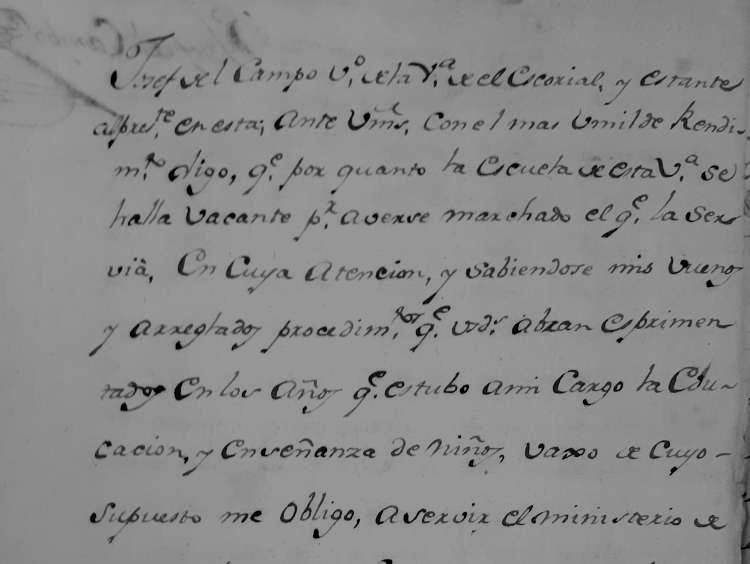 Josef del Campo Vº. de la Vª. de el Escorial, y estante
al presᵗᵉ. en esta; Ante Vmˢ. Con el mas Umilde Rendi-
mᵗᵒ. digo, qᵉ. por quanto la Escuela de esta Vª. se
halla vacante pʳ. averse marchado el qᵉ. la Ser
viâ, En Cuya Atencion, y Sabiendose mis vuenos
y Arreglados procedimᵗᵒˢ. qᵉ. vdˢ. Abran Esprimen
tados En los Años qᵉ. estubo ami Cargo la Edu-
cacion, y Enseñanza de Niños, vaxo de Cuyo-
Supuesto me Obligo, a servir el Ministerio de